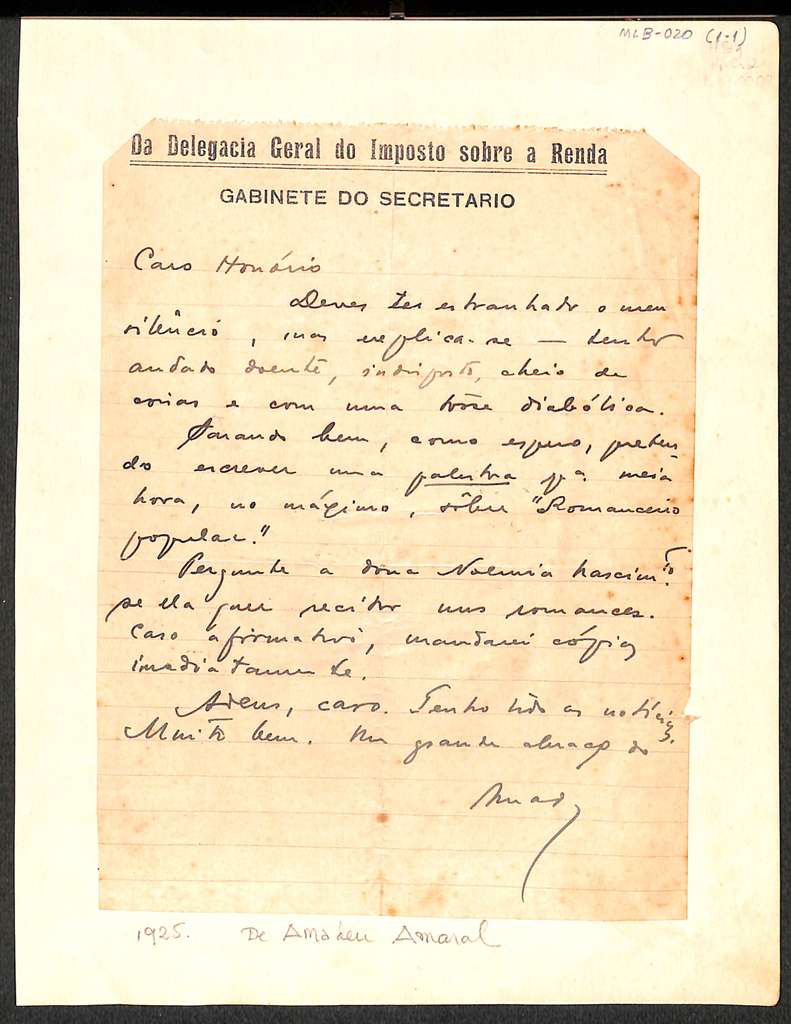 MLB-020 (1-1)
Da Delegacia Geral do Imposto sobre a Renda
GABINETE DO SECRETARIO
Caro Honório
Deves ter estranhado o meu
silêncio, mas explica-se — tenho
andado doente, indisposto, cheio de
coisas e com uma tósse diabólica.
Sarando bem, como espero, preten
do escrever uma palestra pª. meia
hora, no máximo, sôbre "Romanceiro
popular."
Pergunte a dona Noemia Nascimto.
se ela quer recitar uns romances.
Caso afirmativo, mandarei cópias
imediatamente.
Adeus, caro. Tenho lido as notícias.
Muito bem. Um grande abraço do
Amadeu
1925. De Amadeu Amaral